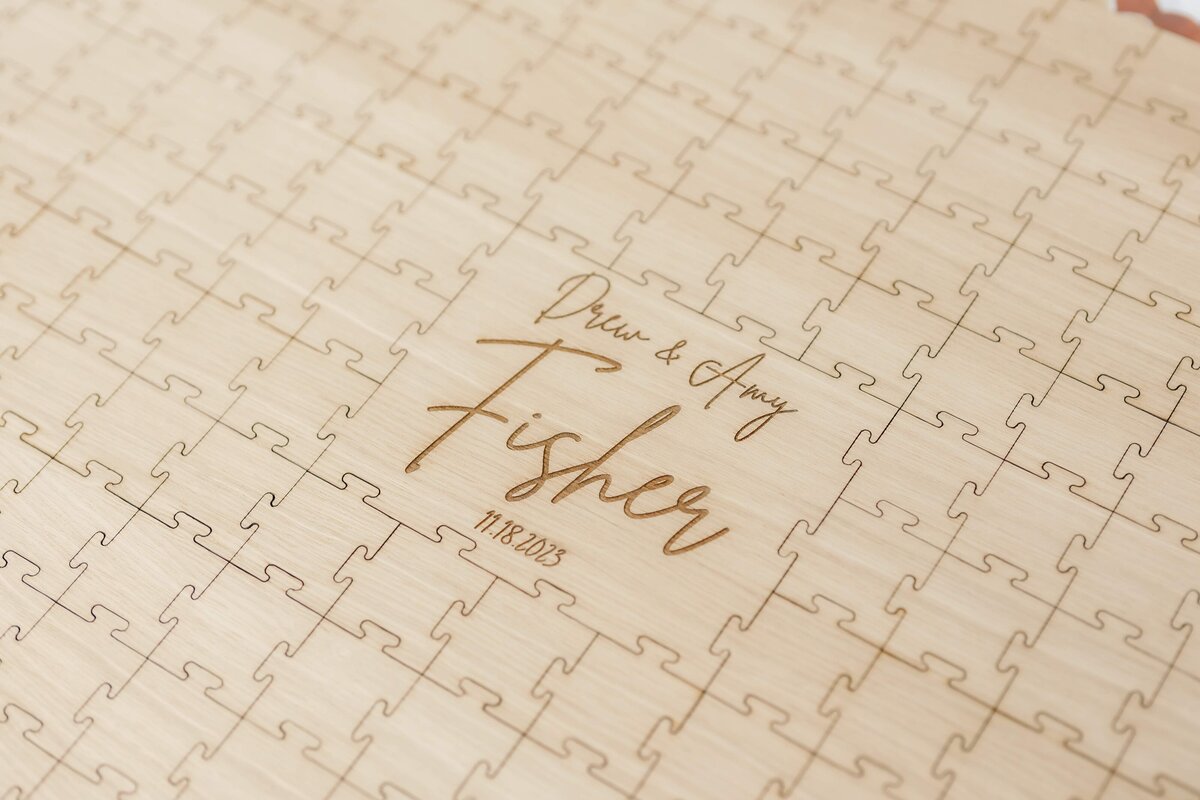 Drew & Amy
Fisher
11.18.2023